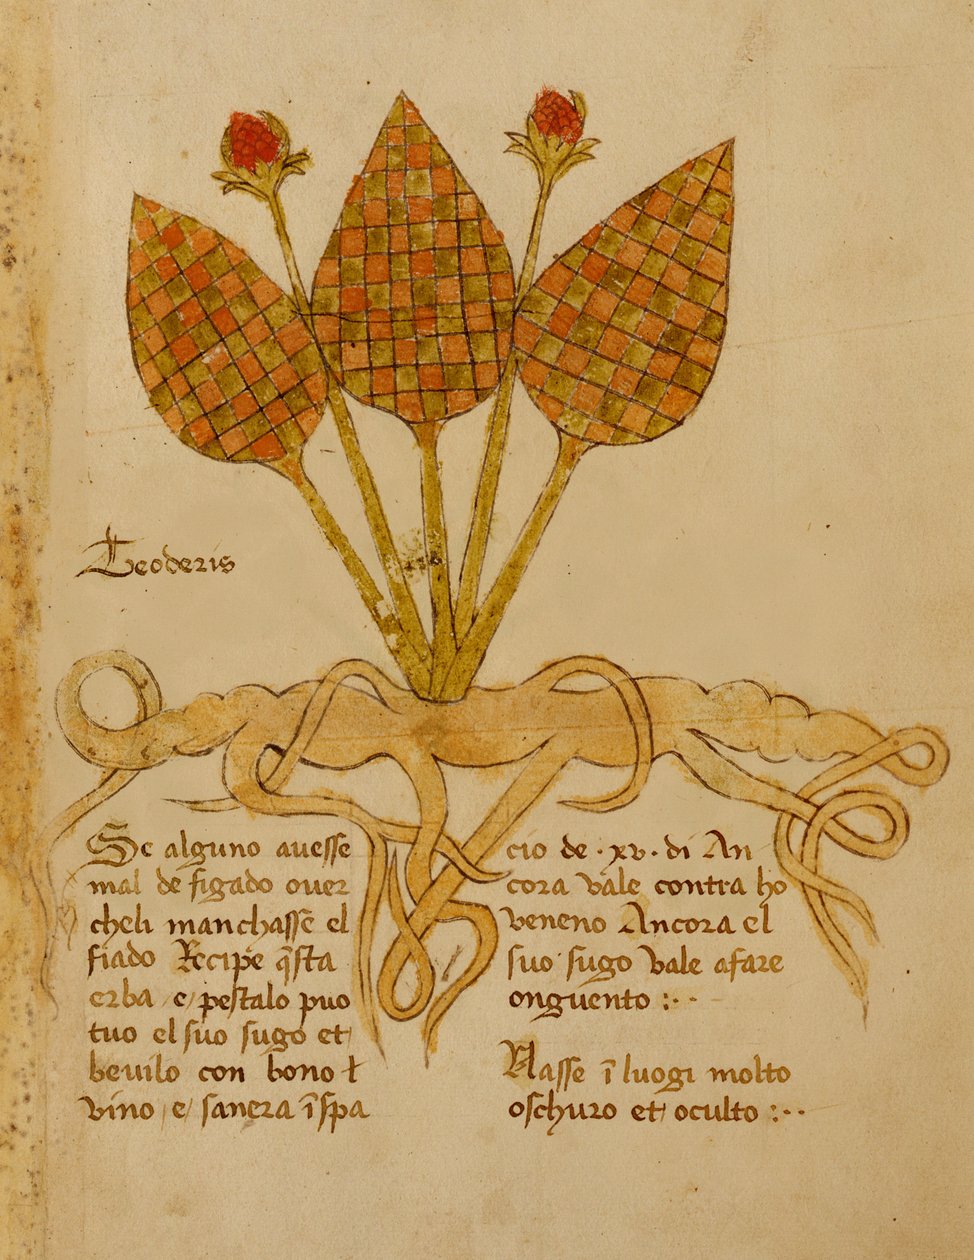 Teoderis
Se alguno auesse
mal de figado ouer
cheli manchassē el
fiado Recipe q̄sta
erba e pestalo puo
tuo el suo sugo et
beuilo con bono ł
vino e sanera ī spa
cio de · xv · di An
cora vale contra ho
veneno Ancora el
suo sugo vale afare
onguento :··
Nasse ī luogi molto
oschuro et oculto :··